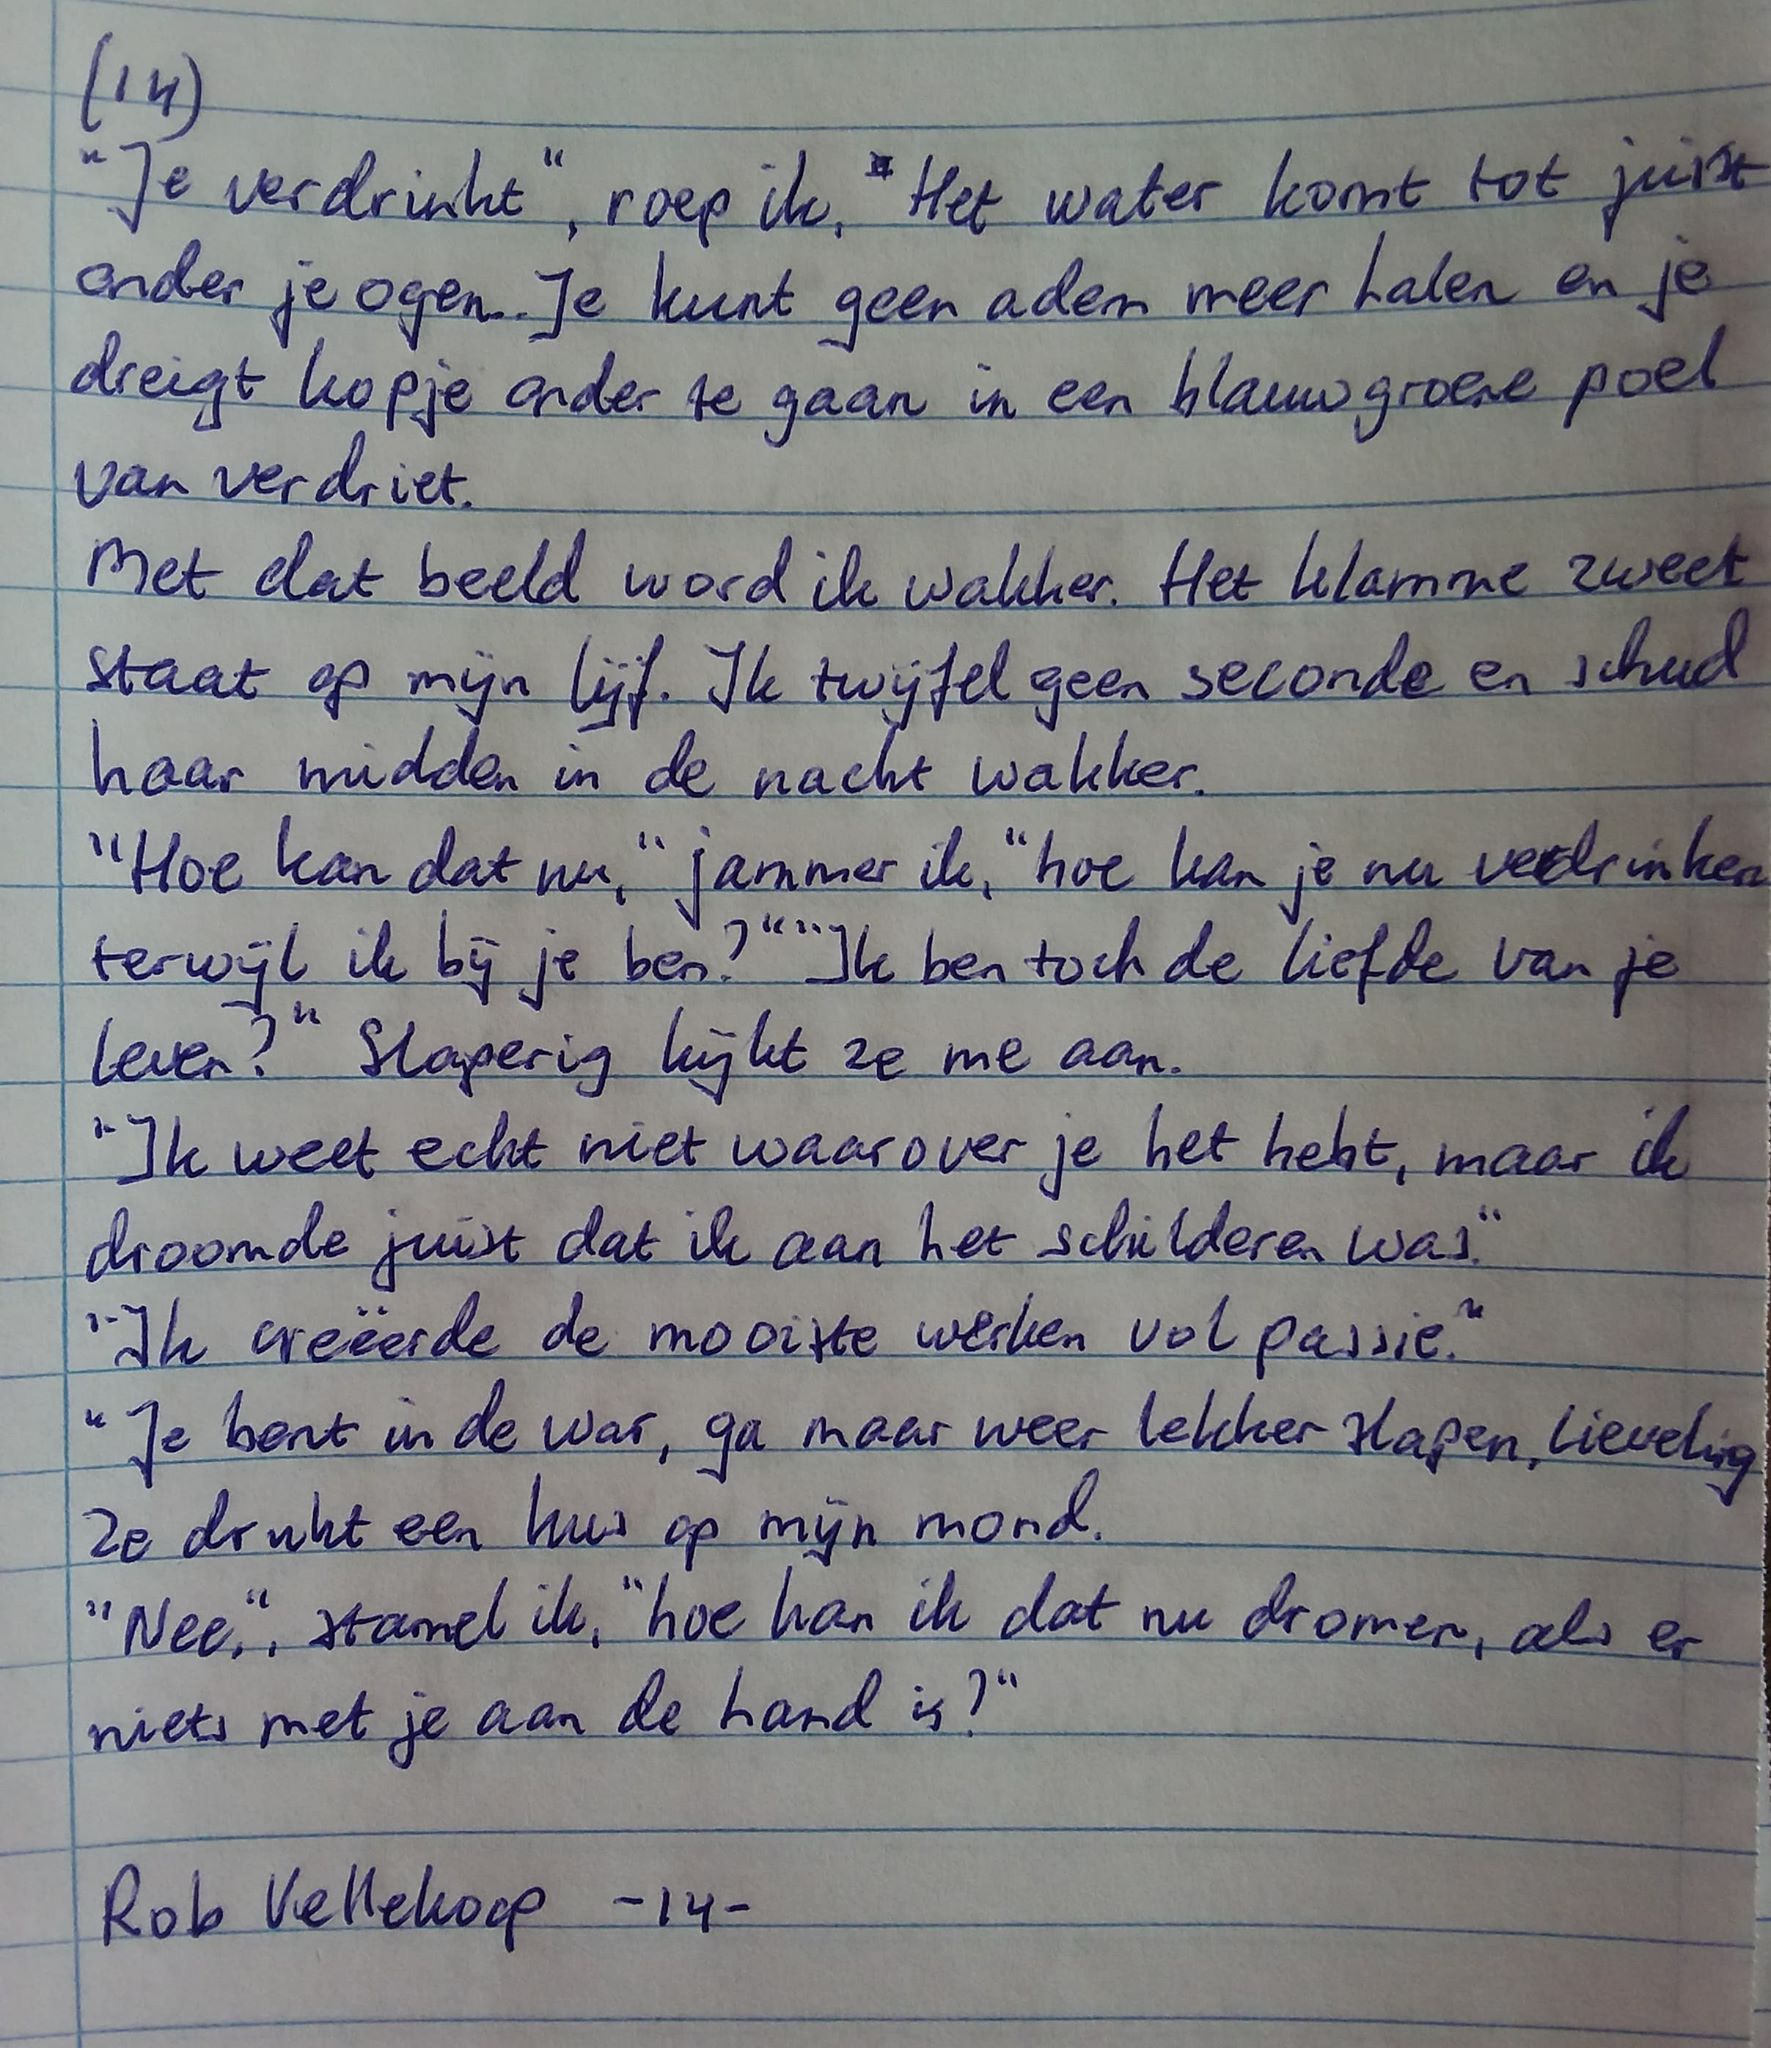 (14)
"Je verdrinkt", roep ik. "Het water komt tot juist
onder je ogen... Je kunt geen adem meer halen en je
dreigt kopje onder te gaan in een blauwgroene poel
van verdriet.
Met dat beeld word ik wakker. Het klamme zweet
staat op mijn lijf. Ik twijfel geen seconde en schud
haar midden in de nacht wakker.
"Hoe kan dat nu," jammer ik, "hoe kan je nu verdrinken
terwijl ik bij je ben?" "Ik ben toch de liefde van je
leven?" Slaperig kijkt ze me aan.
"Ik weet echt niet waarover je het hebt, maar ik
droomde juist dat ik aan het schilderen was."
"Ik creëerde de mooiste werken vol passie."
"Je bent in de war, ga maar weer lekker slapen, lieveling
Ze drukt een kus op mijn mond.
"Nee,", stamel ik, "hoe kan ik dat nu dromen, als er
niets met je aan de hand is?"
Rob Vellekoop -14-